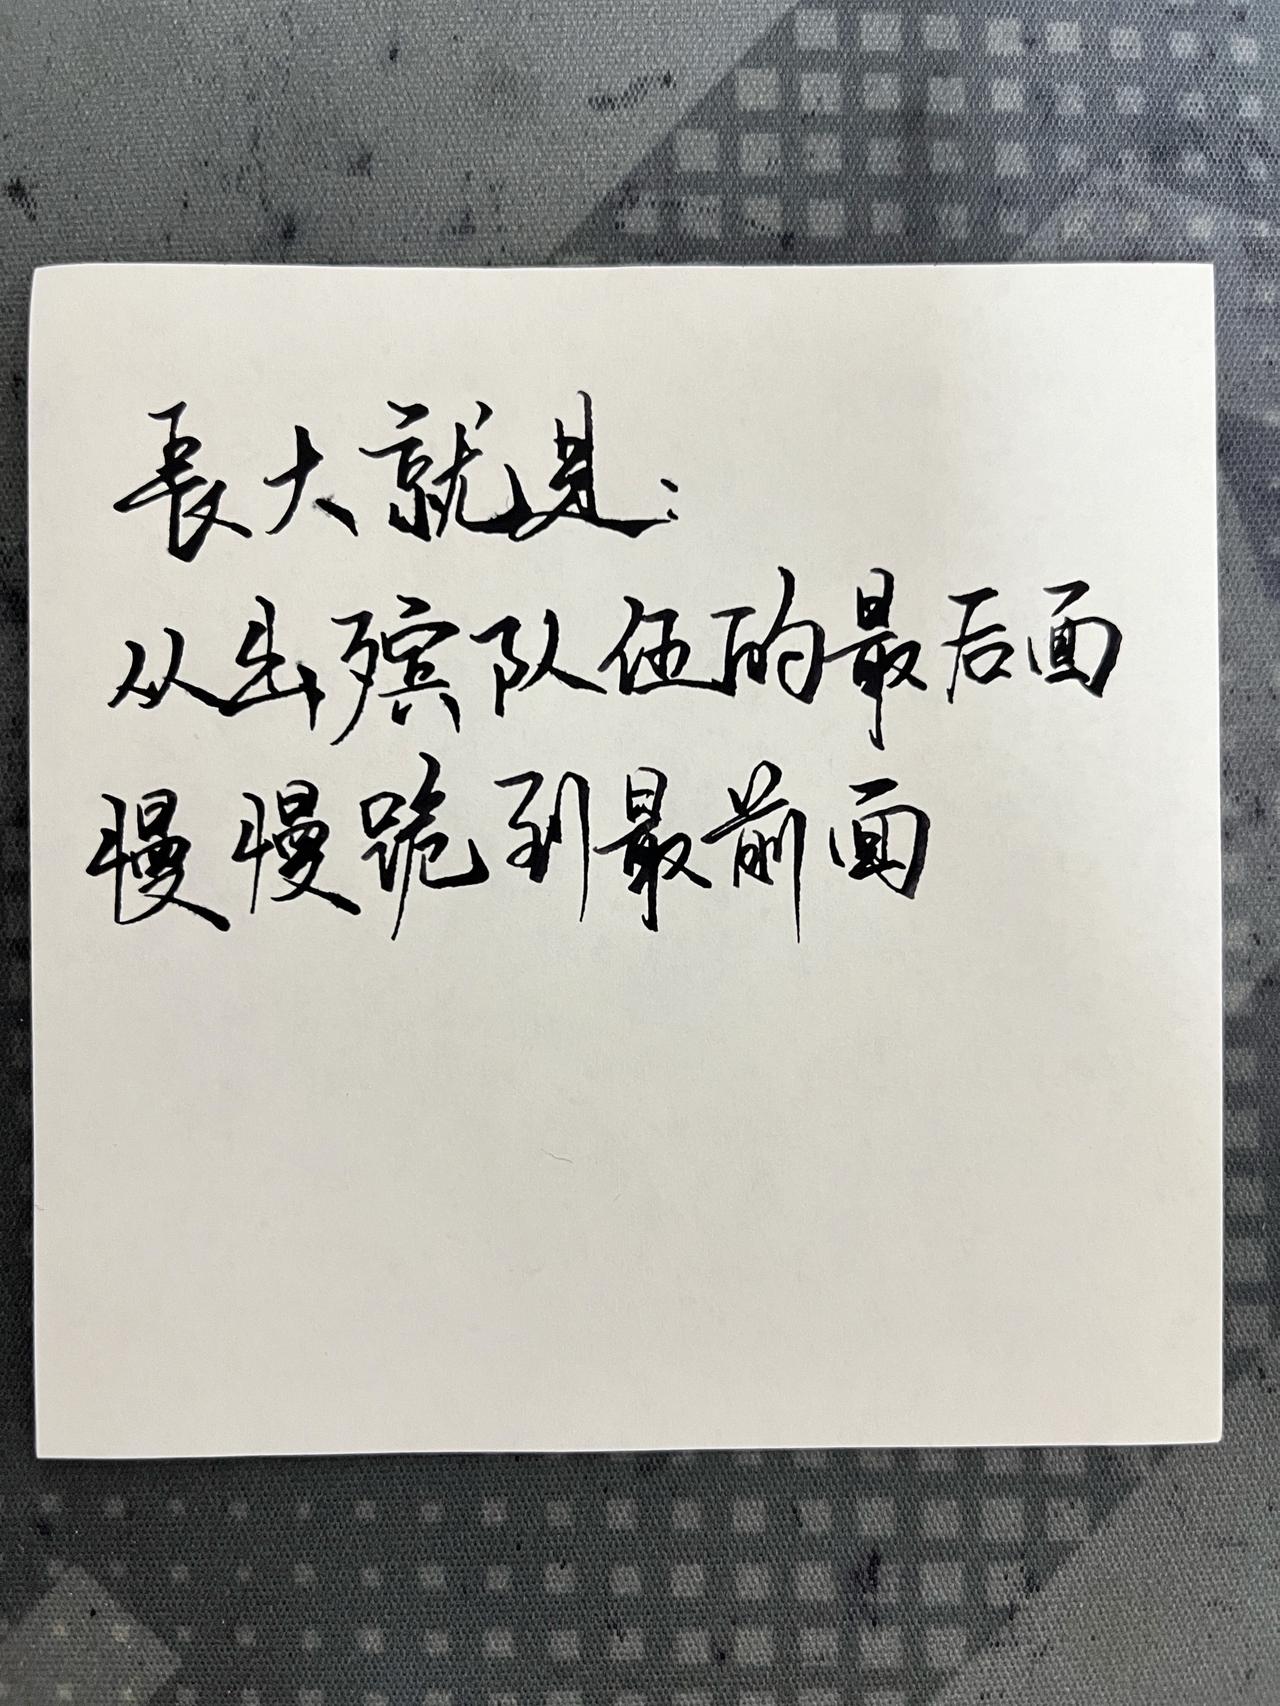 長大就是：
从出殡队伍的最后面
慢慢跪到最前面